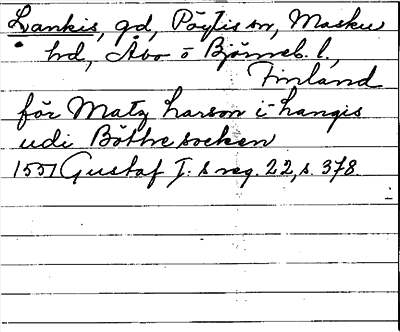 Lankis, gd, Pöytis sn, Masku
hd, Åbo o Björneb. l.,
Finland
för Matz Larson i Langis
udi Böthe socken
1551 Gustaf I:s reg. 22, s. 378.